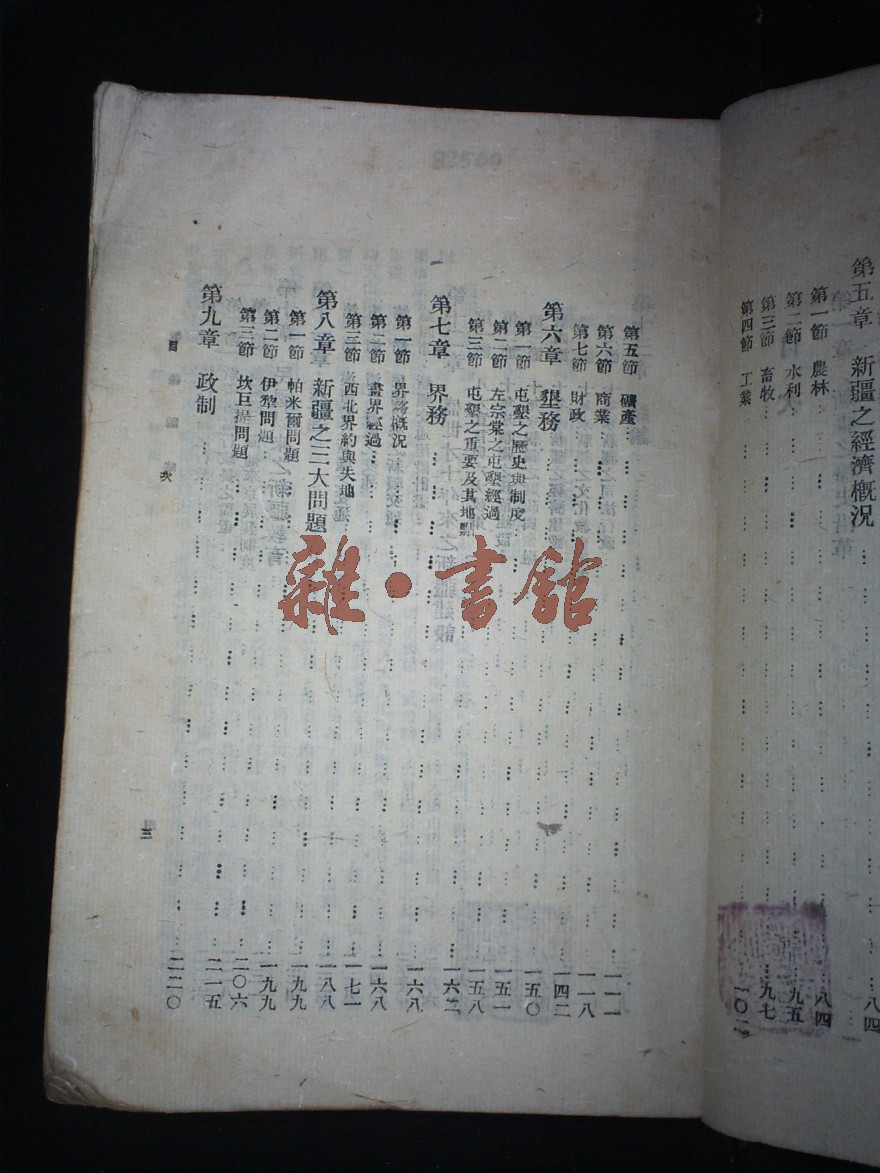 第五章 新疆之經濟概況 八四
第一節 農林 八四
第二節 水利 九五
第三節 畜牧 九七
第四節 工業
第五節 礦產 一一一
第六節 商業 一一八
第七節 財政 一四二
第六章 墾務 一五〇
第一節 屯墾之歷史與制度 一五一
第二節 左宗棠之屯墾經過 一五八
第三節 屯墾之重要及其地點 一六二
第七章 界務 一六八
第一節 界務概況 一六八
第二節 畫界經過 一七一
第三節 西北界約與失地 一八八
第八章 新疆之三大問題 一九九
第一節 帕米爾問題 一九九
第二節 伊犂問題 二〇六
第三節 坎巨提問題 二一五
第九章 政制 二二〇
目 次
三
雜·書館